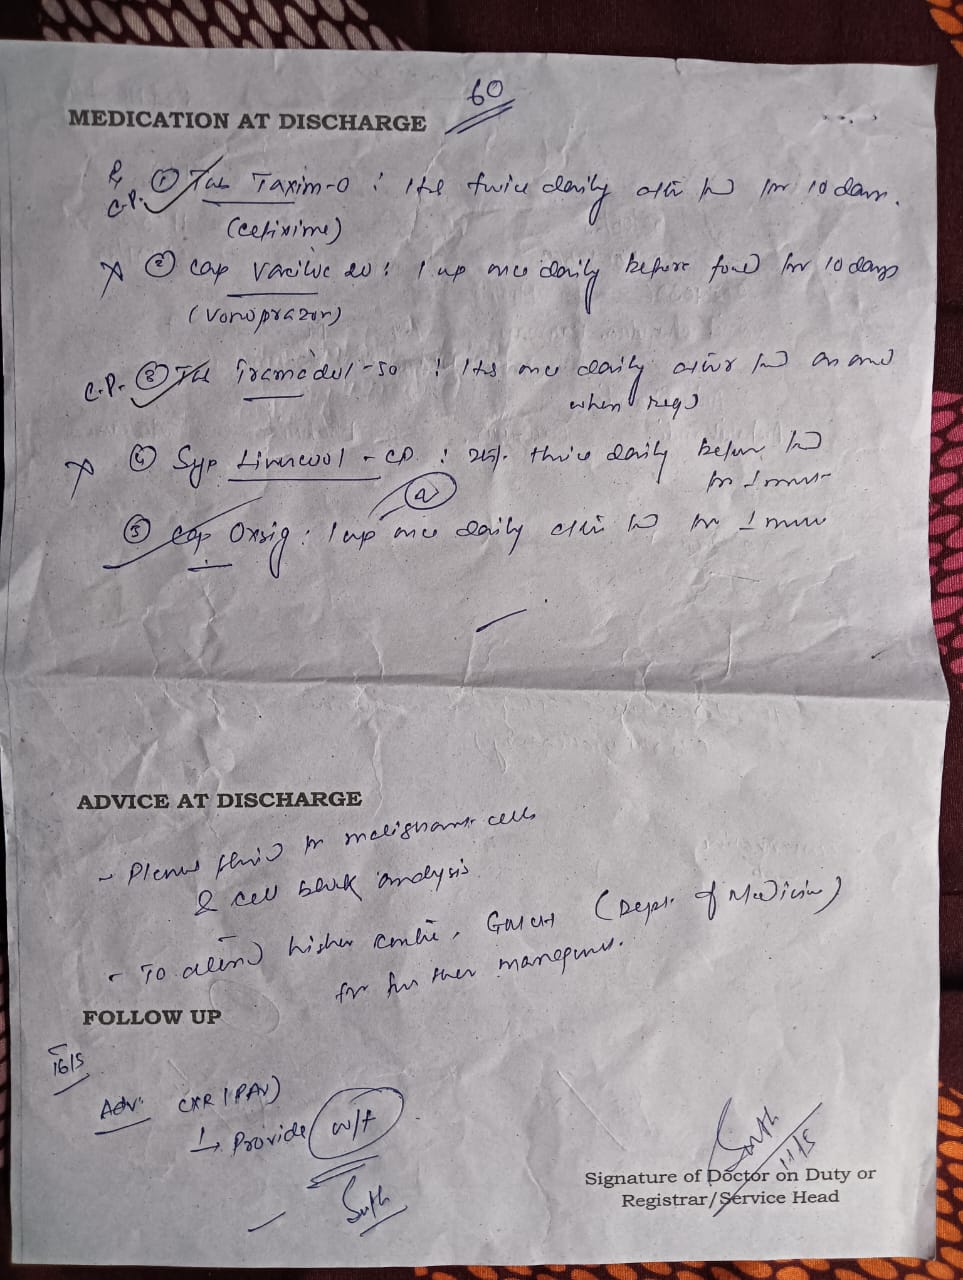 60
MEDICATION AT DISCHARGE
① Tab Taxim-O : 1tab twice daily for 10 days.
C.P.
(cefixime)
X ② cap 20 : 1 cap once daily before food for 10 days
(Vonoprazan)
C.P. ③ Tab Tramadol-50 : 1tab once daily after food as and
when reqd
X ④ Syp - CP : thrice daily before food
for 1 month
a
⑤ cap Oxsig : 1 cap once daily after food for 1 month
ADVICE AT DISCHARGE
- Pleural fluid for malignant cells
& cell block analysis
- To attend higher centre, (Dept. of Medicine)
for further management.
FOLLOW UP
16/5
Adv: CXR (PAV)
↳ Provide w/f
11/5
Signature of Doctor on Duty or
Registrar/Service Head